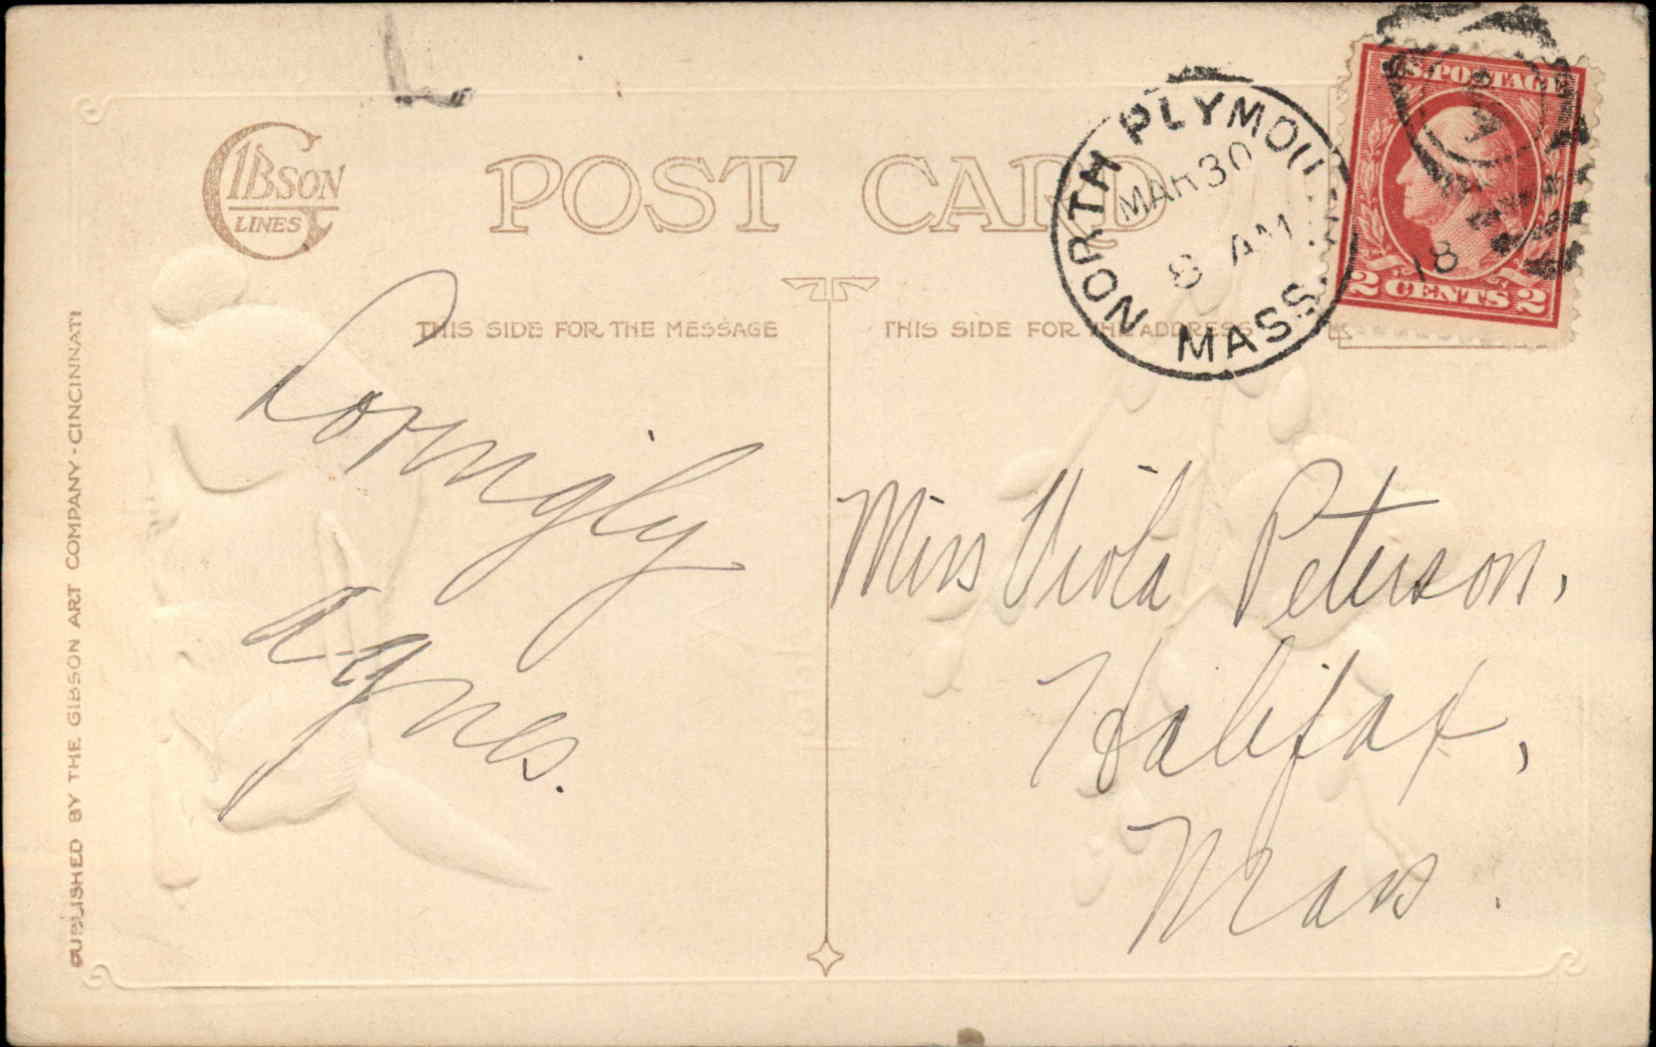 GIBSON
LINES
POST CARD
THIS SIDE FOR THE MESSAGE
THIS SIDE FOR THE ADDRESS
PUBLISHED BY THE GIBSON ART COMPANY - CINCINNATI
NORTH PLYMOUTH
MAR 30
8 AM
18
MASS.
U.S. POSTAGE
2 CENTS 2
L
Lovingly
Agnes.
Miss Viola Peterson,
Halifax,
Mass.